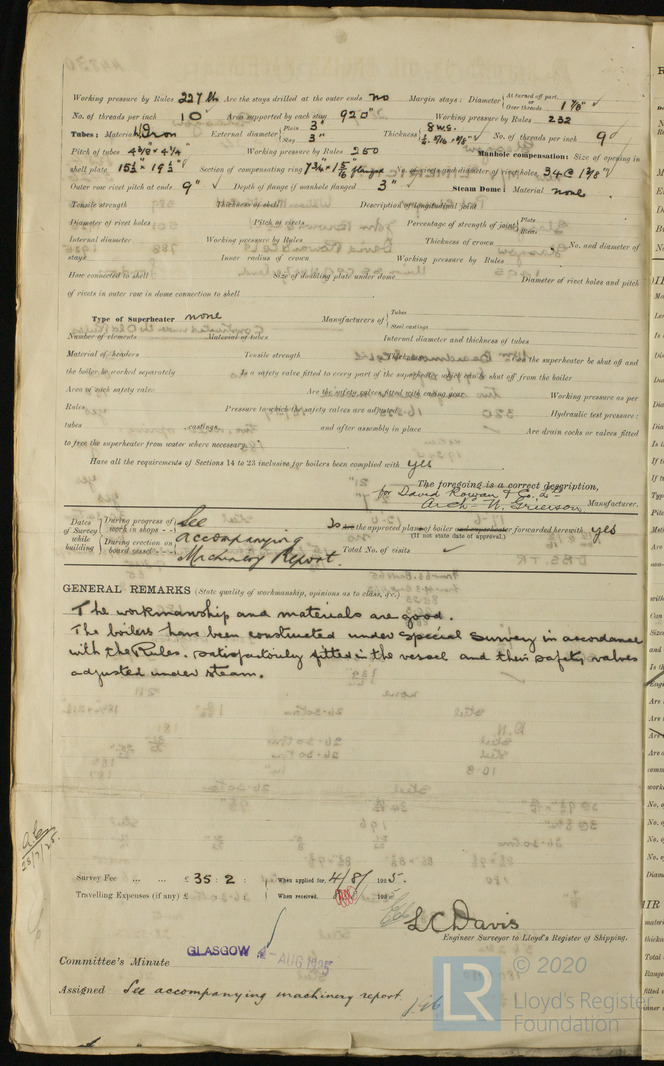 Working pressure by Rules 227 lb Are the stays drilled at the outer ends no Margin stays: Diameter { At turned off part, or Over threads 1 7/8" ✓
No. of threads per inch 10 ✓ Area supported by each stay 920" Working pressure by Rules 232
Tubes: Material W Iron External diameter { Plain 3" Stay 3" Thickness { 8 W.G. No. of threads per inch 9 ✓
Pitch of tubes 4 3/8" × 4 1/4" Working pressure by Rules 250 Manhole compensation: Size of opening in
shell plate 15 1/2" × 19 1/2" Section of compensating ring No. of rivets and diameter of rivet holes 34 @ 1 3/8"
Outer row rivet pitch at ends 9" ✓ Depth of flange if manhole flanged 3" ✓ Steam Dome: Material none
Tensile strength Thickness of shell Description of longitudinal joint
Diameter of rivet holes Pitch of rivets Percentage of strength of joint { Plate Rivets
Internal diameter Working pressure by Rules Thickness of crown No. and diameter of
stays Inner radius of crown Working pressure by Rules
How connected to shell Size of doubling plate under dome Diameter of rivet holes and pitch
of rivets in outer row in dome connection to shell
Type of Superheater none Manufacturers of { Tubes Steel castings
Number of elements Material of tubes Internal diameter and thickness of tubes
Material of headers Tensile strength Thickness Can the superheater be shut off and
the boiler be worked separately Is a safety valve fitted to every part of the superheater which can be shut off from the boiler
Area of each safety valve Are the safety valves fitted with easing gear Working pressure as per
Rules Pressure to which the safety valves are adjusted Hydraulic test pressure:
tubes castings and after assembly in place Are drain cocks or valves fitted
to free the superheater from water where necessary
Have all the requirements of Sections 14 to 23 inclusive for boilers been complied with yes
The foregoing is a correct description,
for David Rowan & Co. Ld
Arch. W. Grierson, Manufacturer.
Dates of Survey while building { During progress of work in shops - - See
During erection on board vessel - - - accompanying Machinery Report.
Is the approved plan of boiler forwarded herewith yes
(If not state date of approval.)
Total No. of visits ✓
GENERAL REMARKS (State quality of workmanship, opinions as to class, &c.)
The workmanship and materials are good.
The boilers have been constructed under Special Survey in accordance
with the Rules. satisfactorily fitted in the vessel and their safety valves
adjusted under steam.
25/7/25.
Survey Fee ... ... £ 35 : 2 : When applied for, 4/8/1925.
Travelling Expenses (if any) £ : : When received, 192
L C Davis
Engineer Surveyor to Lloyd's Register of Shipping.
GLASGOW 4 - AUG 1925
Committee's Minute
Assigned See accompanying machinery report.
LR © 2020
Lloyd's Register
Foundation